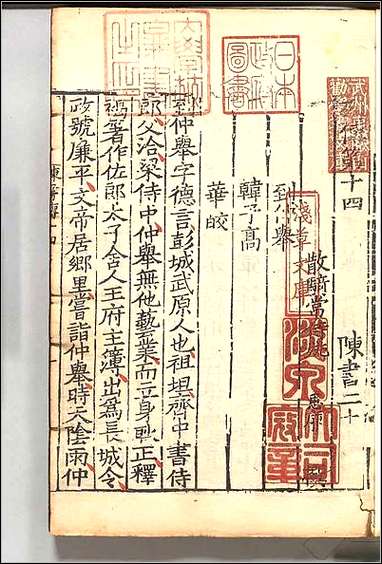 列傳第十四 陳書二十
散騎常侍姚思廉撰
到仲舉
韓子高
華皎
到仲舉字德言彭城武原人也祖坦齊中書侍
郎父洽梁侍中仲舉無他藝業而立身耿正釋
褐著作佐郎太子舍人王府主簿出爲長城令
政號廉平文帝居鄉里嘗詣仲舉時天陰雨仲
日本政府圖書
淺草文庫